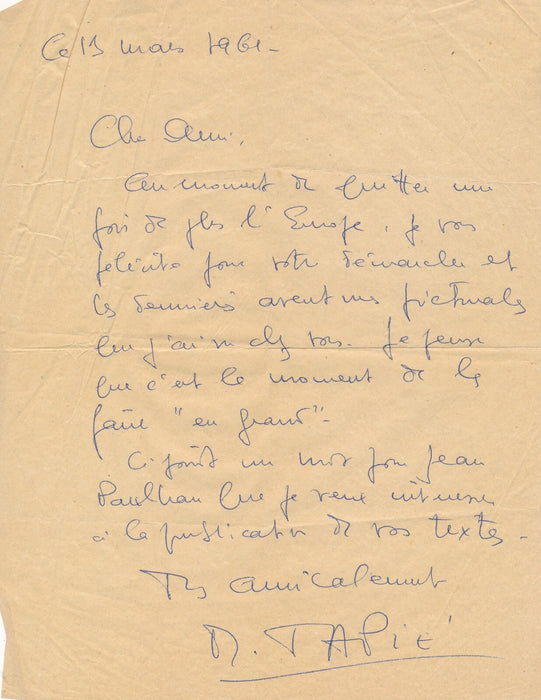 Ce 13 mars 1961-
Cher Ami,
Au moment de quitter une
fois de plus l'Europe, je vous
félicite pour votre démarche et
les derniers aventures picturales
que j'ai vu chez vous. Je pense
que c'est le moment de les
faire "en grand"-
Ci joint un mot pour Jean
Paulhan que je veux intéresser
à la publication de vos textes-
Très amicalement
M. TAPIÉ